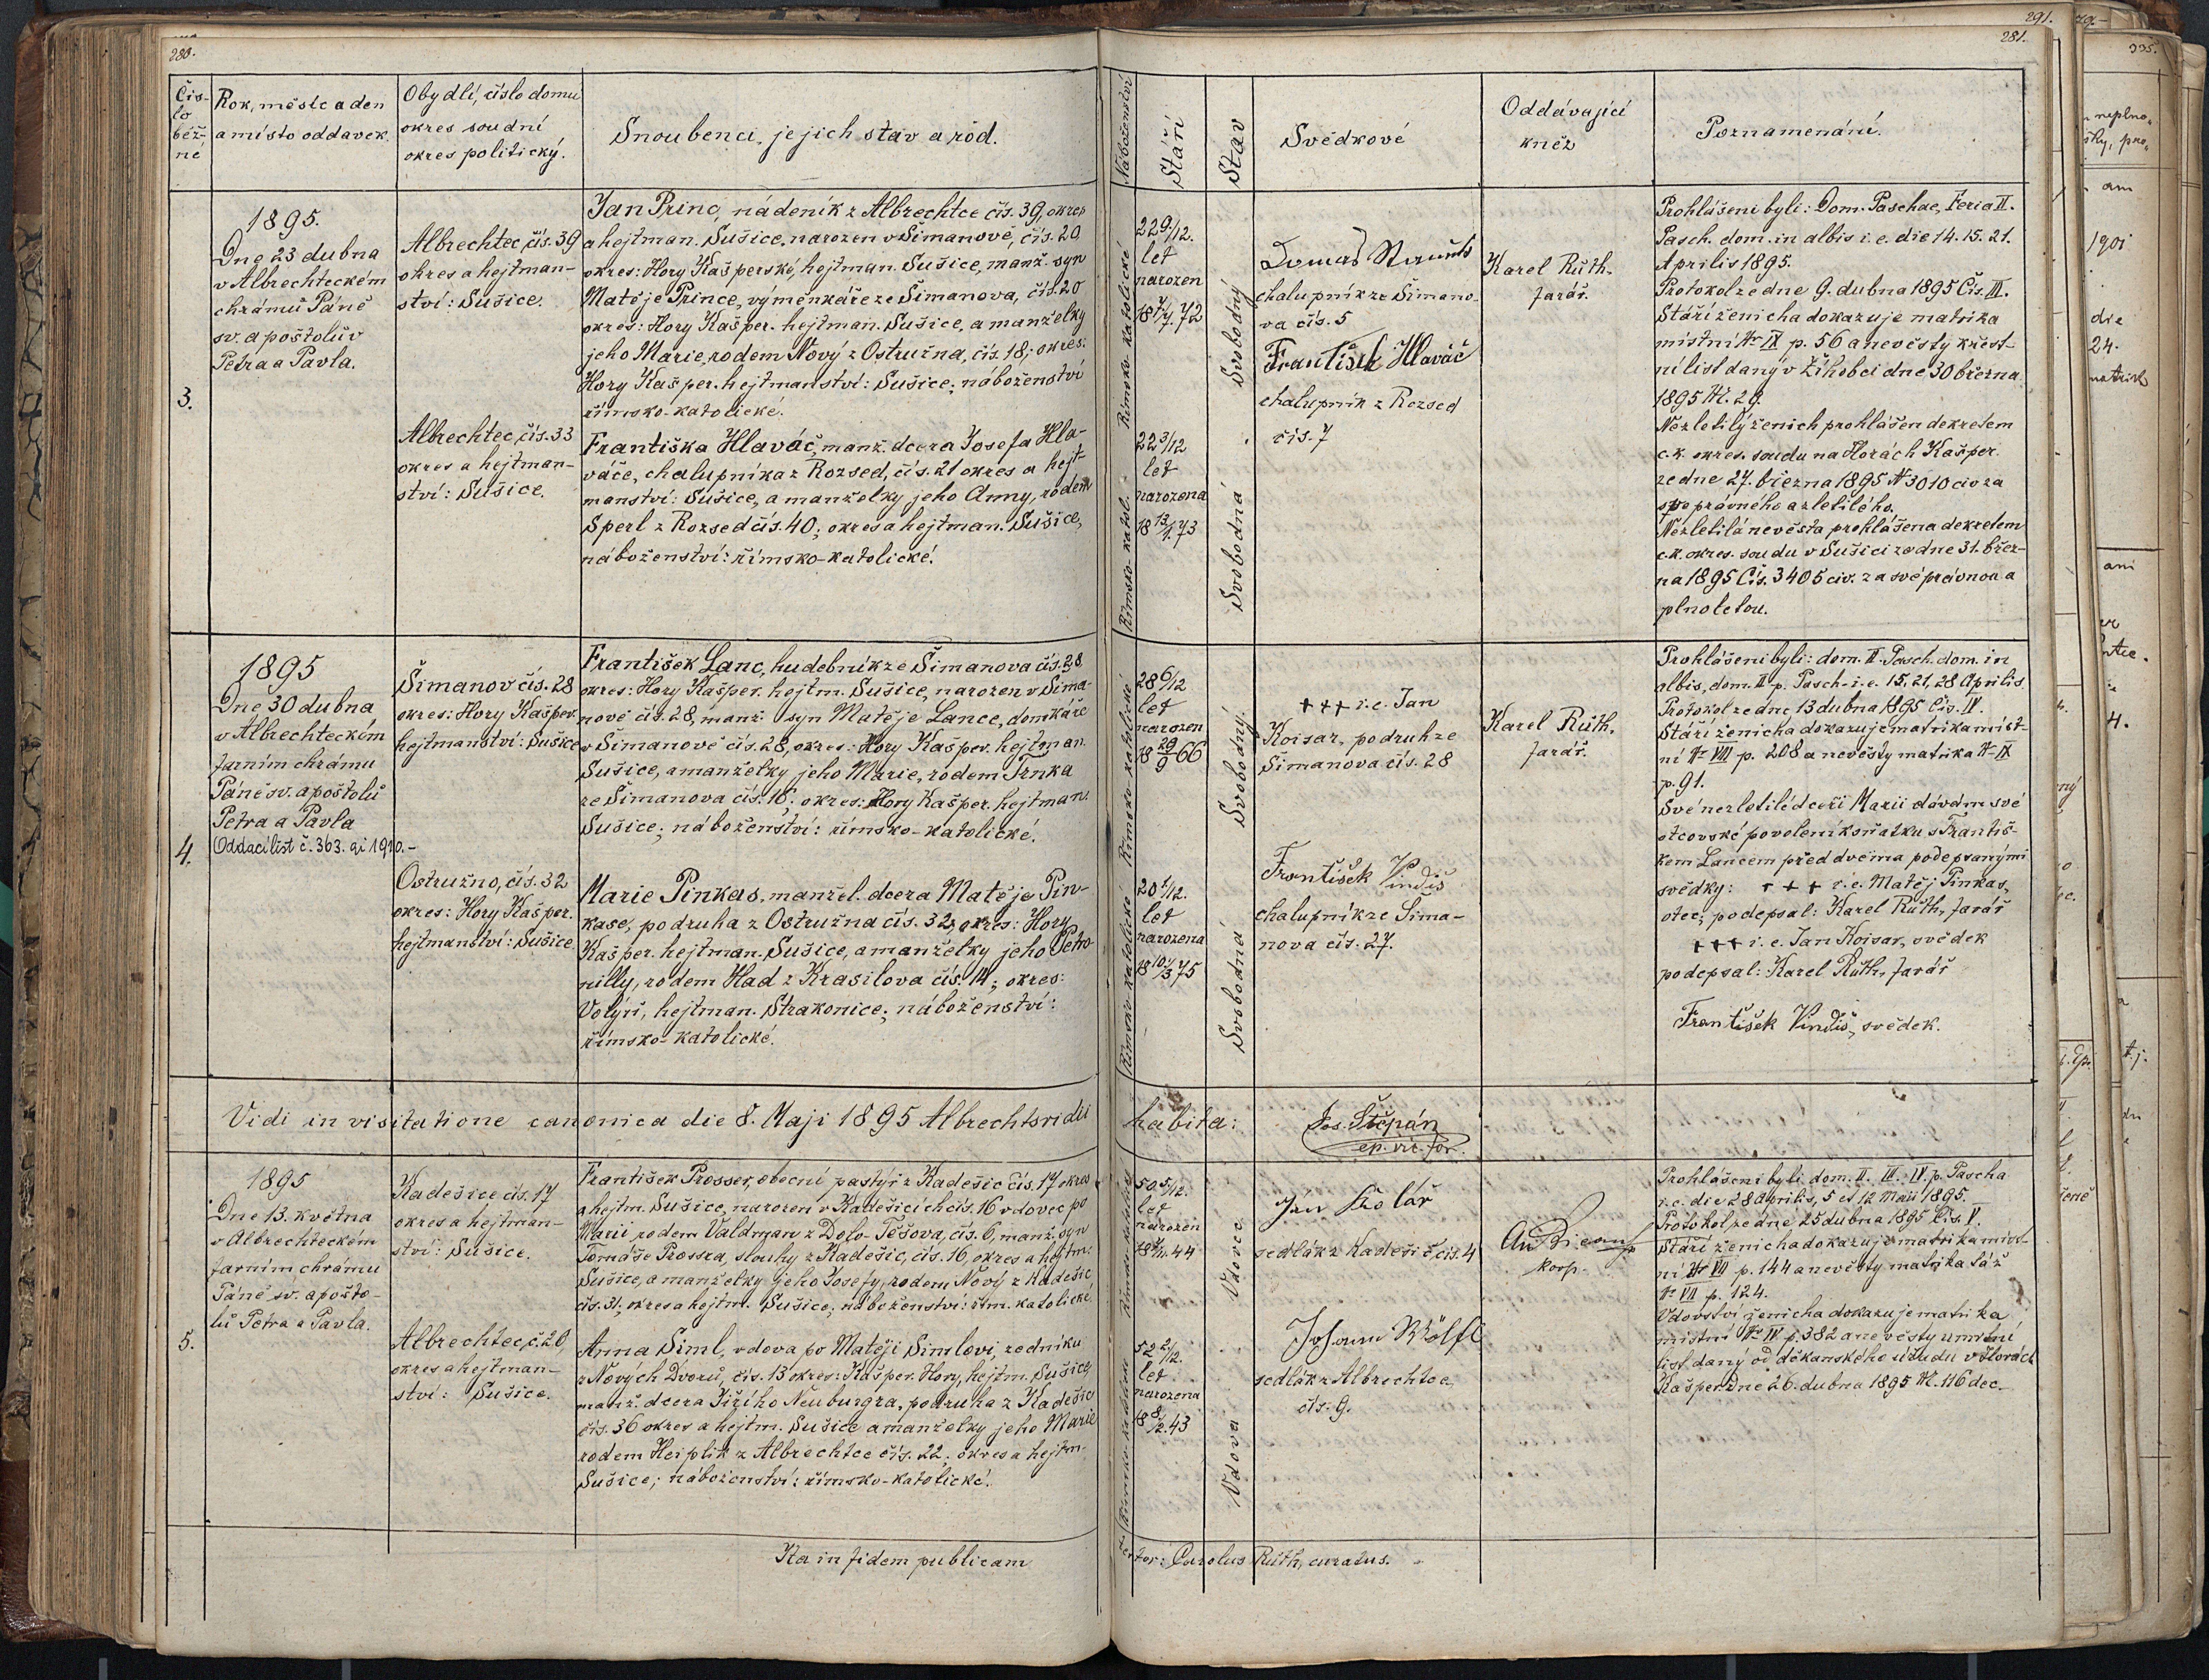 280.
Čís-
lo
běž-
né
Rok, měsíc a den
a místo oddavek.
Obydlí, číslo domu
okres soudní
okres politický.
Snoubenci, jejich stav a rod.
3.
1895.
Dne 23 dubna
v Albrechteckém
chrámu Páně
sv. apoštolův
Petra a Pavla.
Albrechtec, čís. 39
okres a hejtman-
ství: Sušice.
Jan Princ, nádeník z Albrechtce čís. 39, okres
a hejtman. Sušice, narozen v Šimanově, čís. 20
okres: Hory Kašperské, hejtman. Sušice, manž. syn
Matěje Prince, výměnkáře ze Šimanova, čís. 20
okres: Hory Kašper. hejtman. Sušice, a manželky
jeho Marie, rodem Nový z Ostružna, čís. 18; okres:
Hory Kašper. hejtmanství: Sušice; náboženství
římsko-katolické.
Albrechtec, čís. 33
okres a hejtman-
ství: Sušice.
Františka Hlaváč, manž. dcera Josefa Hla-
váče, chalupníka z Rozsed, čís. 21 okres a hejt-
manství: Sušice, a manželky jeho Anny, rodem
Šperl z Rozsed čís. 40; okres a hejtman. Sušice,
náboženství: římsko-katolické.
4.
1895
Dne 30 dubna
v Albrechteckém
farním chrámu
Páně sv. apoštolů
Petra a Pavla
Oddací list č. 363. ai 1910.-
Šimanov čís. 28
okres: Hory Kašper.
hejtmanství: Sušice
František Lanc, hudebník ze Šimanova čís. 28
okres: Hory Kašper. hejtm. Sušice, narozen v Šima-
nově čís. 28, manž. syn Matěje Lance, domkáře
v Šimanově čís. 28, okres: Hory Kašper. hejtman.
Sušice, a manželky jeho Marie, rodem Trnka
ze Šimanova čís. 16; okres: Hory Kašper. hejtman.
Sušice; náboženství: římsko-katolické.
Ostružno, čís. 32
okres: Hory Kašper.
hejtmanství: Sušice
Marie Pinkas, manžel. dcera Matěje Pin-
kase, podruha z Ostružna čís. 32, okres: Hory
Kašper. hejtman. Sušice, a manželky jeho Petro-
nilly, rodem Had z Krasilova čís. 14; okres:
Volyň, hejtman. Strakonice; náboženství:
římsko-katolické.
Vidi in visitatione canonica die 8. Maji 1895 Albrechtsridii
5.
1895
Dne 13. května
v Albrechteckém
farním chrámu
Páně sv. apošto-
lů Petra a Pavla.
Kadešice čís. 17
okres a hejtman-
ství: Sušice.
František Prosser, obecní pastýř z Kadešic čís. 17 okres
a hejtm. Sušice, narozen v Kadešicích čís. 16 vdovec po
Marii, rodem Valdman z Dolo-Těšova, čís. 6, manž. syn
Tomáše Prossra, slouhy z Kadešic, čís. 16, okres a hejtm.
Sušice, a manželky jeho Josefy, rodem Nový z Kadešic
čís. 31; okres a hejtm. Sušice; náboženství: řím. katolické.
Albrechtec, č. 20,
okres a hejtman-
ství: Sušice.
Anna Siml, vdova po Matěji Simlovi, zedníku
z Nových Dvorů, čís. 13 okres: Kašper. Hory, hejtm. Sušice
manž. dcera Jiřího Neuburgra, podruha z Kadešic
čís. 36 okres a hejtm. Sušice a manželky jeho Marie
rodem Heiplik z Albrechtce čís. 22; okres a hejtm.
Sušice; náboženství: římsko-katolické.
Ita in fidem publicam
291.
281.
Náboženství
Stáří
Stav
Svědkové
Oddávající
kněz
Poznamenání.
Římsko-katolické
22 9/12.
let
narozen
18 7/7. 72
Svobodný
Římsko-katol.
22 3/12
let
narozena
18 13/1. 73
Svobodná
chalupník ze Šimano-
va čís. 5
František Hlaváč
chalupník z Rozsed
čís. 7
Karel Růth,
farář.
Prohlášeni byli: Dom. Paschae, Feria II.
Pasch. dom. in albis i. e. die 14. 15. 21.
Aprilis 1895.
Protokol ze dne 9. dubna 1895 Čís. III.
Stáří ženicha dokazuje matrika
místní Nr IX p. 56 a nevěsty křest-
ní list daný v Žihobci dne 30 března
1895 N. 29.
Nezletilý ženich prohlášen dekretem
c. k. okres. soudu na Horách Kašper.
ze dne 27. března 1895 N 3010 civ za
svéprávného a zletilého.
Nezletilá nevěsta prohlášena dekretem
c. k. okres. soudu v Sušici ze dne 31. břez-
na 1895 Čís. 3405 civ. za svéprávnou a
plnoletou.
Římsko-katolické
28 6/12
let
narozen
18 29/9 66
Svobodný.
Římsko-katolické
20 1/12.
let
narozena
18 10/3 75
Svobodná
+++ i. e. Jan
Koisar, podruh ze
Šimanova čís. 28
František Vindiš
chalupník ze Šima-
nova čís. 27.
Karel Růth,
farář.
Prohlášeni byli: dom. II. Pasch. dom. in
albis, dom. II p. Pasch. i. e. 15, 21, 28 Aprilis
Protokol ze dne 13 dubna 1895 Čís. IV.
Stáří ženicha dokazuje matrika míst-
ní Nr VIII p. 208 a nevěsty matrika Nr IX
p. 91.
Své nezletilé dceři Marii dávám své
otcovské povolení k sňatku s Františ-
kem Lancem před dvěma podepsanými
svědky: +++ i. e. Matěj Pinkas,
otec; podepsal: Karel Růth, farář
+++ i. e. Jan Koisar, svědek
podepsal: Karel Růth, farář
František Vindiš, svědek.
habita:
Jos. Štěpán
ep. vic. for.
Římsko-katolické
50 5/12.
let
narozen
Vdovec
52 2/12.
let
narozena
18 8/2. 43
Vdova
Jan Kolář
sedlák z Kadešic čís. 4
Johann Wölfl
sedlák z Albrechtce
čís. 9.
koop.
Prohlášeni byli dom. II. III. IV. p. Pascha
i. e. die 28 Aprilis, 5 et 12 Maii 1895.
Protokol ze dne 25 dubna 1895 Čís. V.
Stáří ženicha dokazuje matrika míst-
ní Nr VII p. 144 a nevěsty matrika táž
Nr VII p. 124.
Vdovství ženicha dokazuje matrika
místní Nr IV p. 382 a nevěsty úmrtní
list daný od děkanského úřadu v Horách
Kašper. dne 26. dubna 1895 N. 116 dec.
Carolus Růth, curatus.
335.
1901
die
24.